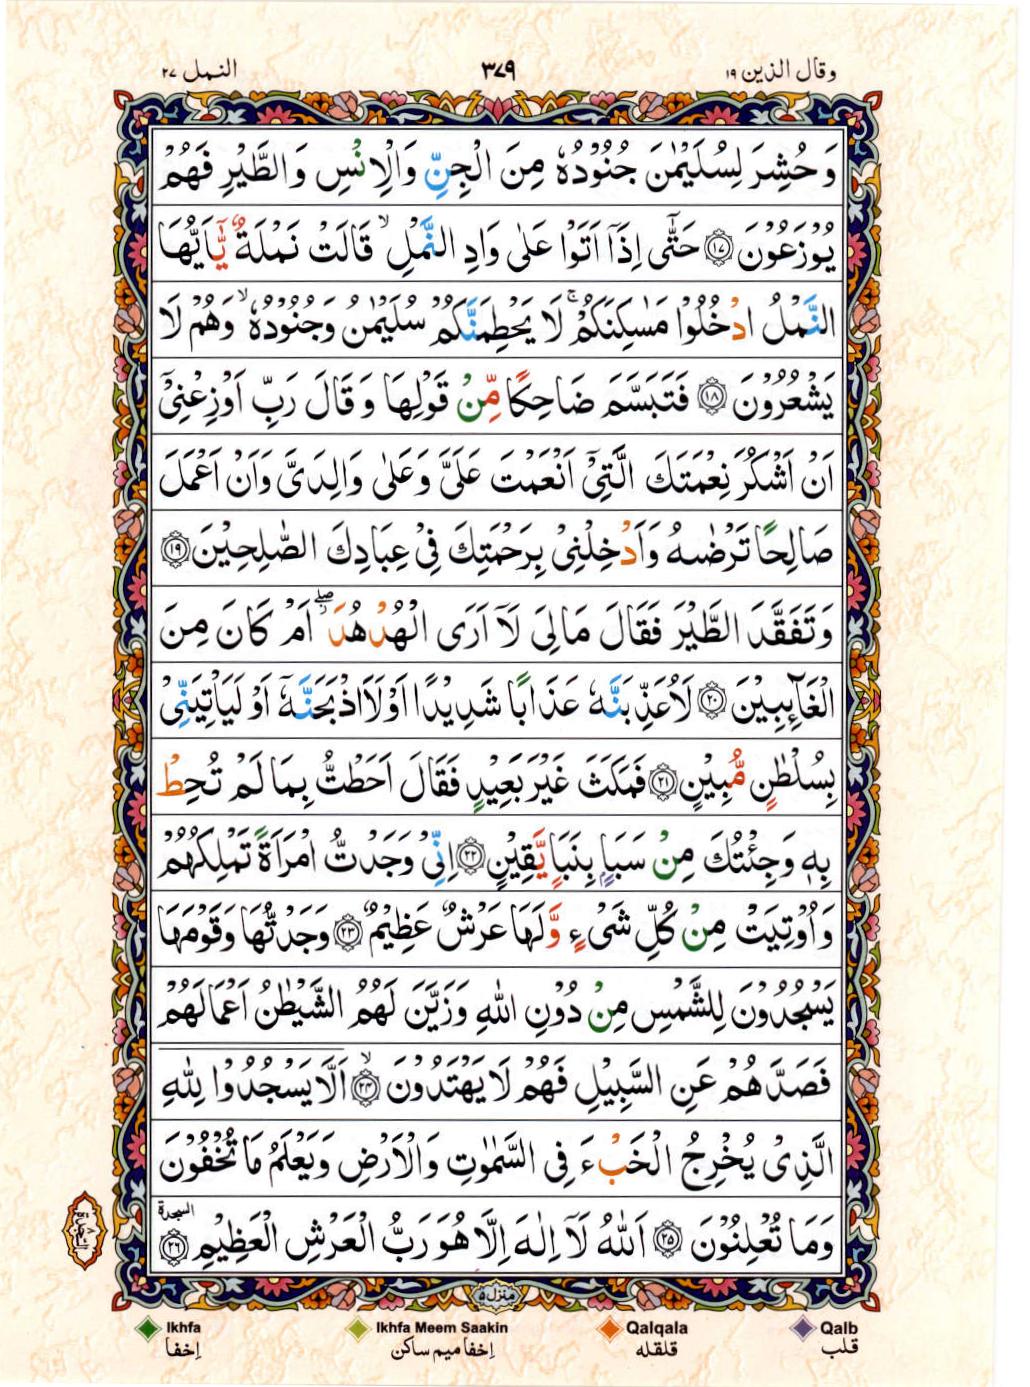 وقال الذين ١٩
٣٧٩
النمل ٢٧
وَحُشِرَ لِسُلَيْمٰنَ جُنُوْدُهٗ مِنَ الْجِنِّ وَالْاِنْسِ وَالطَّيْرِ فَهُمْ
يُوْزَعُوْنَ ﴿۱۷﴾ حَتّٰۤى اِذَاۤ اَتَوْا عَلٰى وَادِ النَّمْلِ ۙ قَالَتْ نَمْلَةٌ يّٰۤاَيُّهَا
النَّمْلُ ادْخُلُوْا مَسٰكِنَكُمْ ۚ لَا يَحْطِمَنَّكُمْ سُلَيْمٰنُ وَجُنُوْدُهٗ ۙ وَهُمْ لَا
يَشْعُرُوْنَ ﴿۱۸﴾ فَتَبَسَّمَ ضَاحِكًا مِّنْ قَوْلِهَا وَقَالَ رَبِّ اَوْزِعْنِیْۤ
اَنْ اَشْكُرَ نِعْمَتَكَ الَّتِیْۤ اَنْعَمْتَ عَلَیَّ وَعَلٰى وَالِدَیَّ وَاَنْ اَعْمَلَ
صَالِحًا تَرْضٰىهُ وَاَدْخِلْنِیْ بِرَحْمَتِكَ فِیْ عِبَادِكَ الصّٰلِحِيْنَ ﴿۱۹﴾
وَتَفَقَّدَ الطَّيْرَ فَقَالَ مَا لِیَ لَاۤ اَرَى الْهُدْهُدَ ۖ اَمْ كَانَ مِنَ
الْغَآىِٕبِيْنَ ﴿۲۰﴾ لَاُعَذِّبَنَّهٗ عَذَابًا شَدِيْدًا اَوْ لَاَاذْبَحَنَّهٗۤ اَوْ لَيَاْتِيَنِّیْ
بِسُلْطٰنٍ مُّبِيْنٍ ﴿۲۱﴾ فَمَكَثَ غَيْرَ بَعِيْدٍ فَقَالَ اَحَطْتُّ بِمَا لَمْ تُحِطْ
بِهٖ وَجِئْتُكَ مِنْ سَبَاٍۭ بِنَبَاٍ يَّقِيْنٍ ﴿۲۲﴾ اِنِّیْ وَجَدْتُّ امْرَاَةً تَمْلِكُهُمْ
وَاُوْتِيَتْ مِنْ كُلِّ شَیْءٍ وَّلَهَا عَرْشٌ عَظِيْمٌ ﴿۲۳﴾ وَجَدْتُّهَا وَقَوْمَهَا
يَسْجُدُوْنَ لِلشَّمْسِ مِنْ دُوْنِ اللّٰهِ وَزَيَّنَ لَهُمُ الشَّيْطٰنُ اَعْمَالَهُمْ
فَصَدَّهُمْ عَنِ السَّبِيْلِ فَهُمْ لَا يَهْتَدُوْنَ ۙ﴿۲۴﴾ اَلَّا يَسْجُدُوْا لِلّٰهِ
الَّذِیْ يُخْرِجُ الْخَبْءَ فِى السَّمٰوٰتِ وَالْاَرْضِ وَيَعْلَمُ مَا تُخْفُوْنَ
وَمَا تُعْلِنُوْنَ ﴿۲۵﴾ اَللّٰهُ لَاۤ اِلٰهَ اِلَّا هُوَ رَبُّ الْعَرْشِ الْعَظِيْمِ ﴿۲۶﴾ السجدة
منزل ٥
Ikhfa
Ikhfa Meem Saakin
Qalqala
Qalb
إخفا
إخفا ميم ساكن
قلقله
قلب